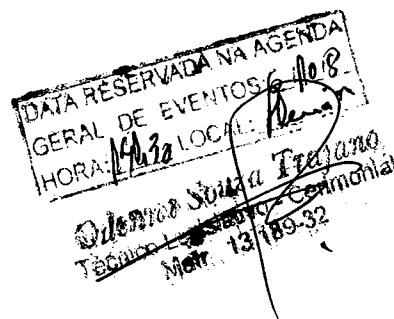 DATA RESERVADA NA AGENDA
GERAL DE EVENTOS:
HORA: 14h30 LOCAL:
Souza Trajano
Técnico Legislativo - Cerimonial
Matr. 13 189-32